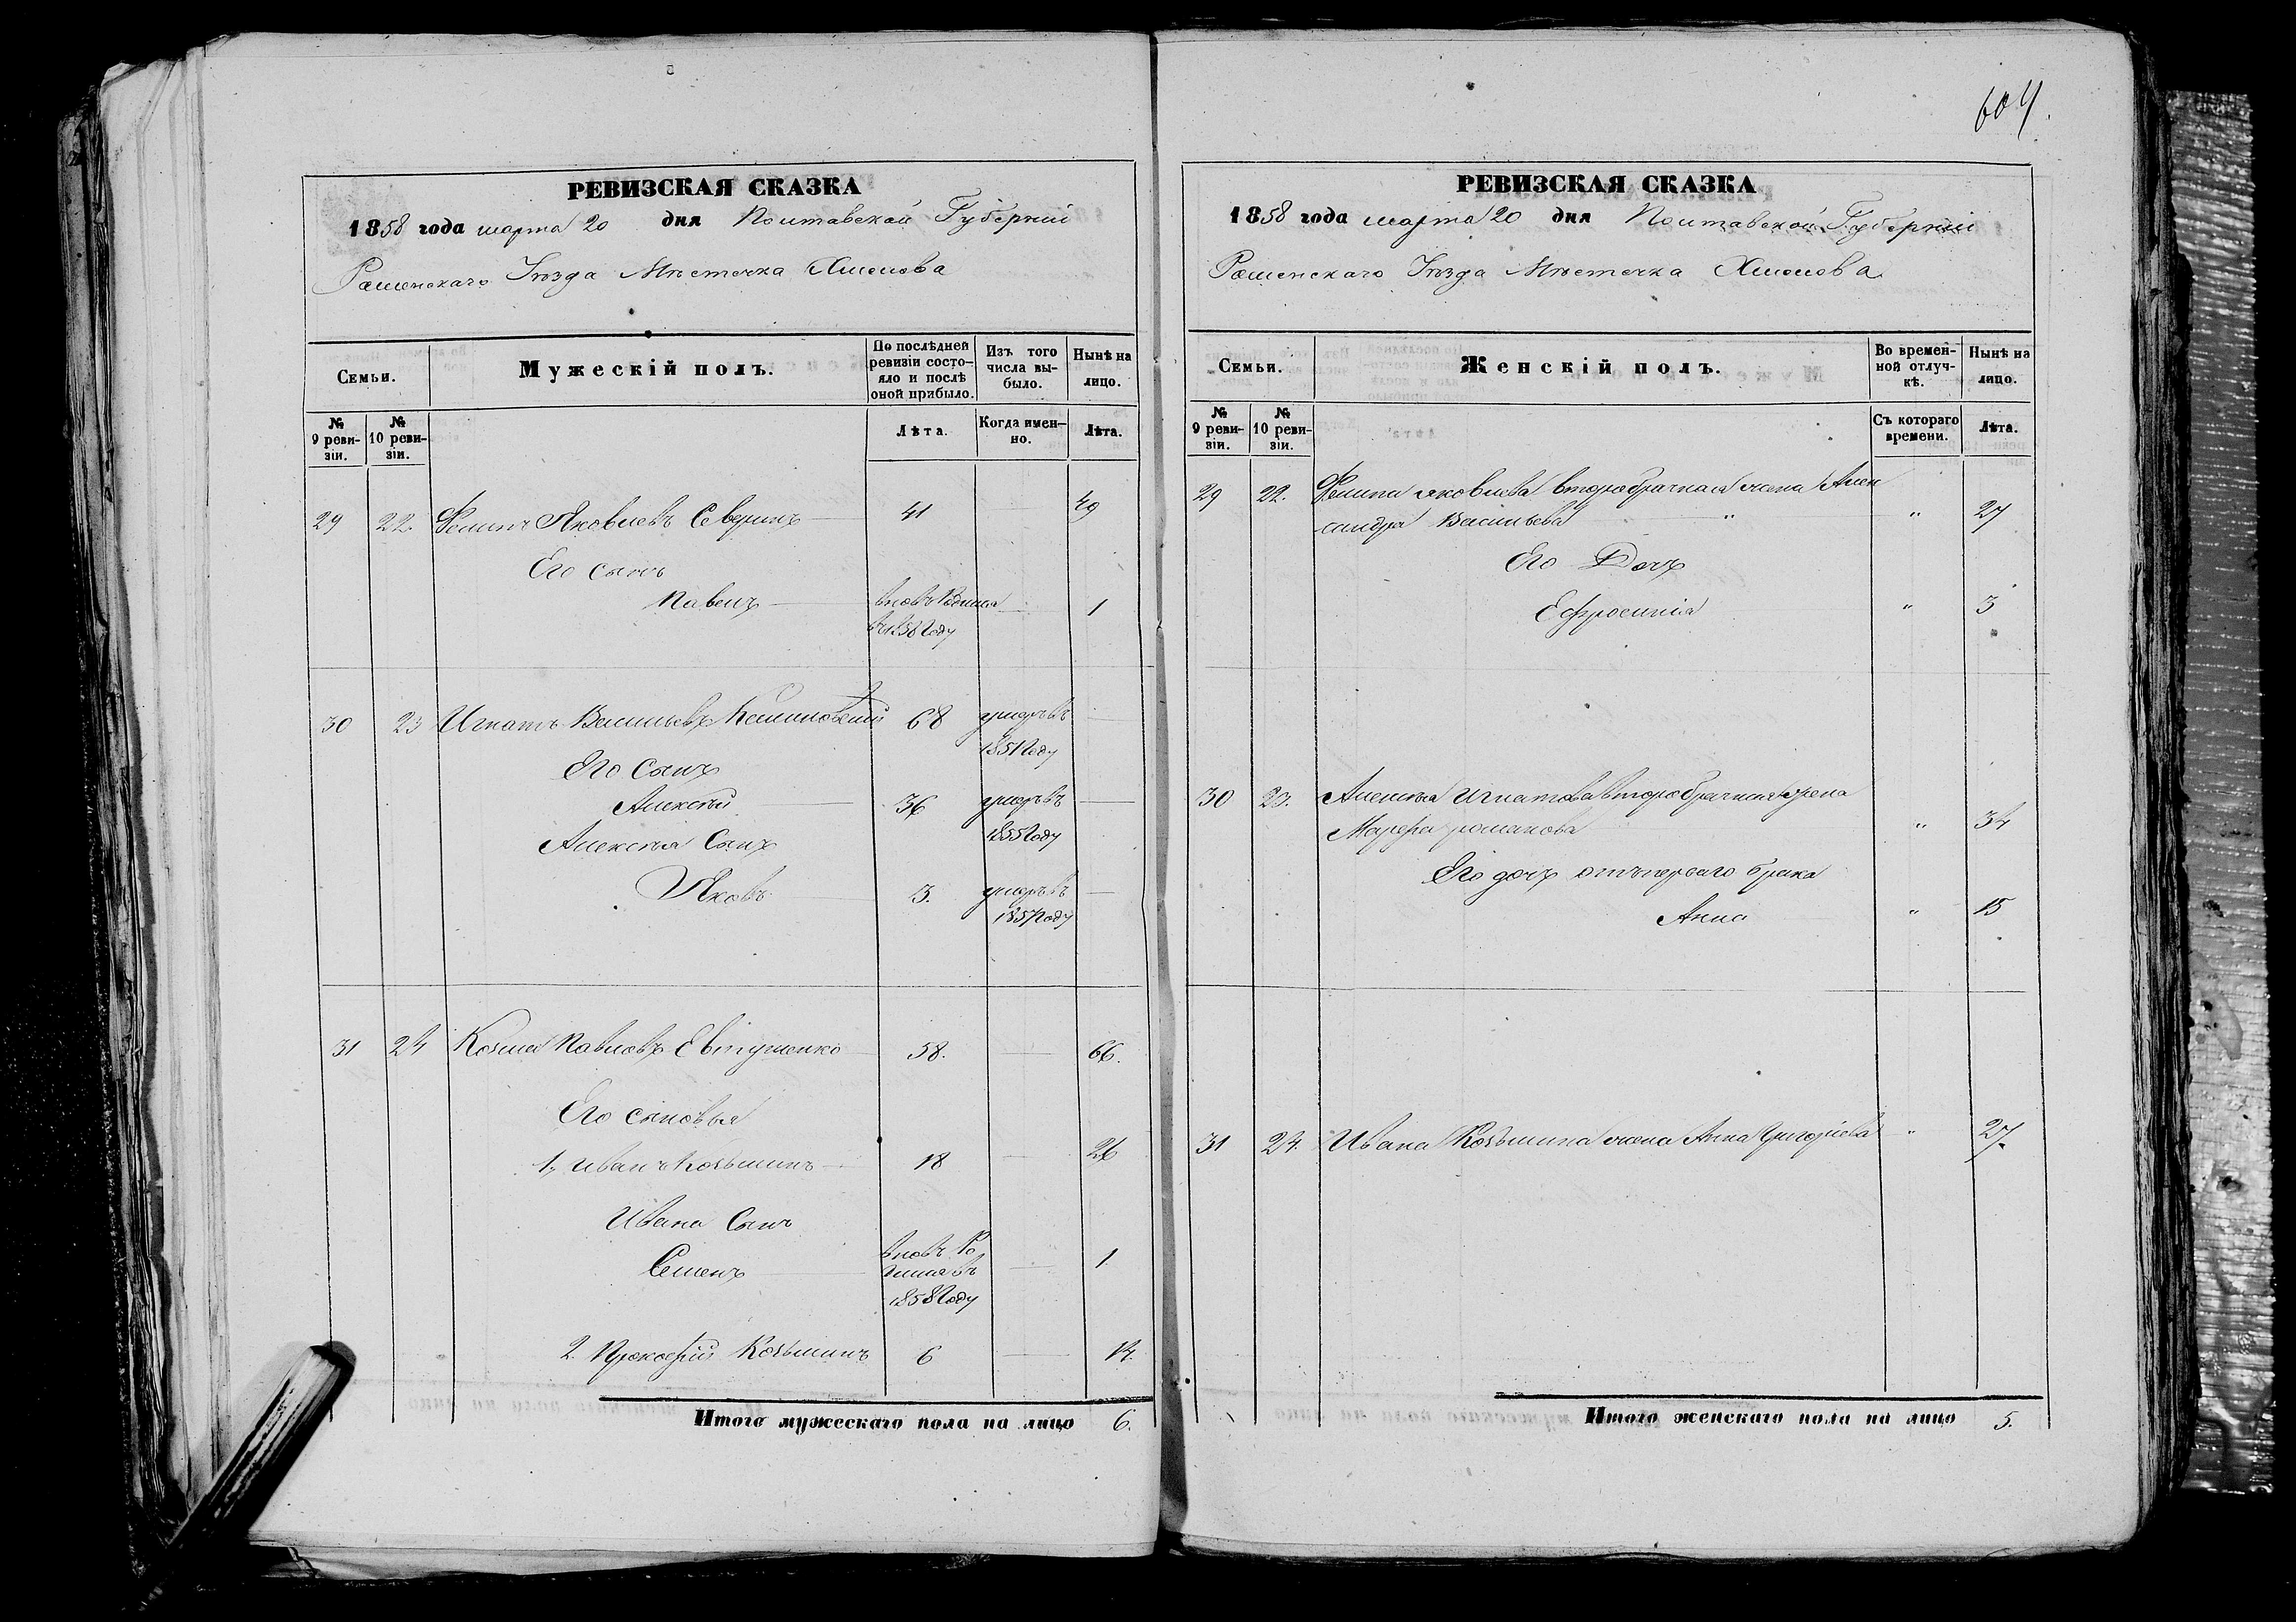 604.
РЕВИЗСКАЯ СКАЗКА
1858 года марта 20 дня Полтавской Губерніи
Роменскаго Уѣзда Мѣстечка Хмелова
Семьи.
Мужескій полъ.
По послѣдней ревизіи состояло и послѣ оной прибыло.
Изъ того числа выбыло.
Нынѣ на лицо.
№ 9 ревизіи.
№ 10 ревизіи.
Лѣта.
Когда именно.
Лѣта.
29 22 Филипъ Яковлевъ Северинъ 41 49
Его сынъ
Павелъ вновь Родился 1
въ 1858 Году
30 23 Игнатъ Васильевъ 68 умеръ въ
1851 Году
Его Сынъ
Алексѣй 36 умеръ въ
1855 Году
Алексѣя Сынъ
Яковъ 3. умеръ въ
1857 Году
31 24 Козма Павловъ 58. 66.
Его сыновья
1, Иванъ Козьминъ 18 26
Ивана Сынъ
Семенъ вновь Ро 1
дился въ
1858 Году
2. Прокофій Козьминъ 6 14.
Итого мужескаго пола на лицо 6.
РЕВИЗСКАЯ СКАЗКА
1858 года марта 20 дня Полтавской Губерніи
Роменскаго Уѣзда Мѣстечка Хмелова
Семьи.
Женскій полъ.
Во временной отлучкѣ.
Нынѣ на лицо.
№ 9 ревизіи.
№ 10 ревизіи.
Съ котораго времени.
Лѣта.
29 22. Филипа яковлева второбрачная жена Алек
сандра Васильева " " 27
Его Дочь
Ефросинія " 3
30 23. Алексѣя Игнатова второбрачная жена
Марфа романова " 34
Его дочь отъ перваго брака
Анна " 15
31 24. Ивана Козьмина жена Анна Григоріева " 27.
Итого женскаго пола на лицо 5.